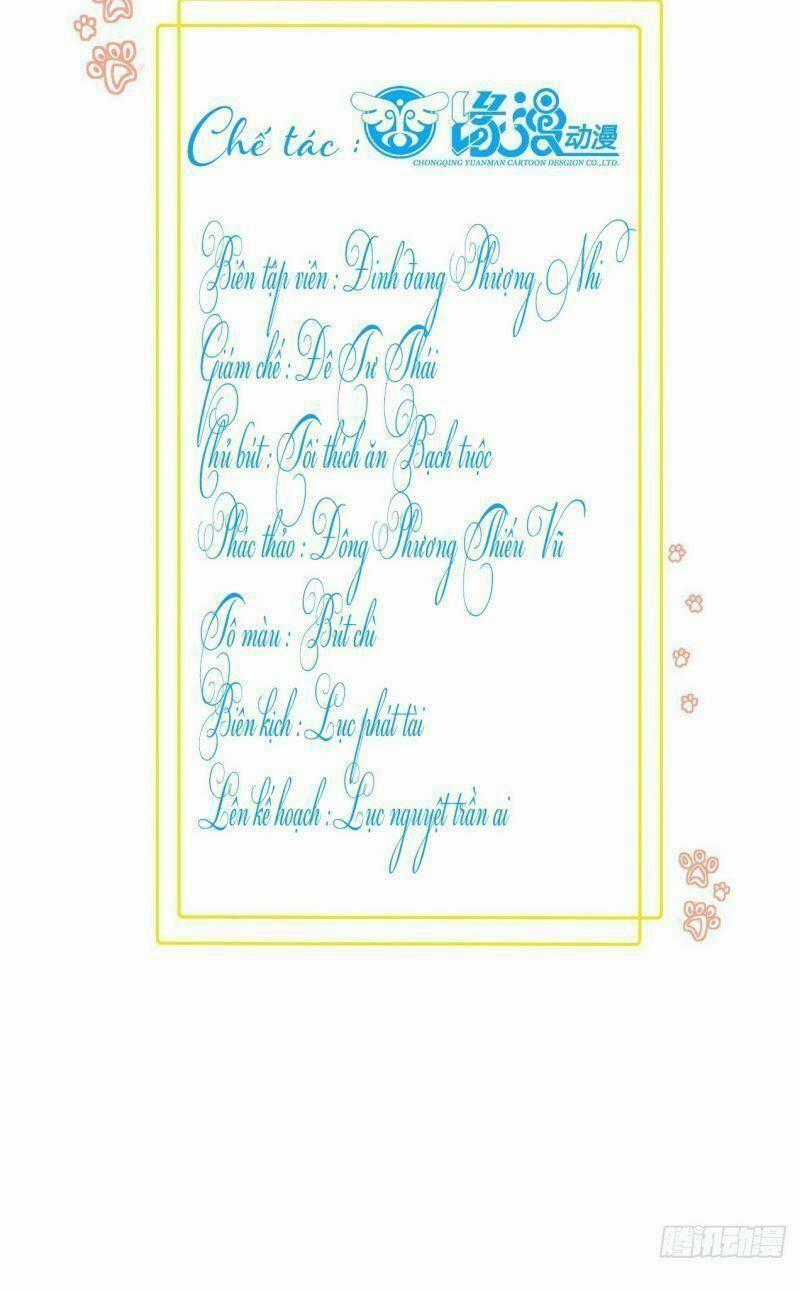 Chế tác : 缘漫动漫
CHONGQING YUANMAN CARTOON DESGION CO.,LTD.
Biên tập viên : Đinh đang Phượng Nhi
Giám chế : Đê Tư Thái
Chủ bút : Tôi thích ăn Bạch tuộc
Phác thảo : Đông Phương Thiếu Vũ
Tô màu : Bút chì
Biên kịch : Lục phát tài
Lên kế hoạch : Lục nguyệt trần ai
腾讯动漫